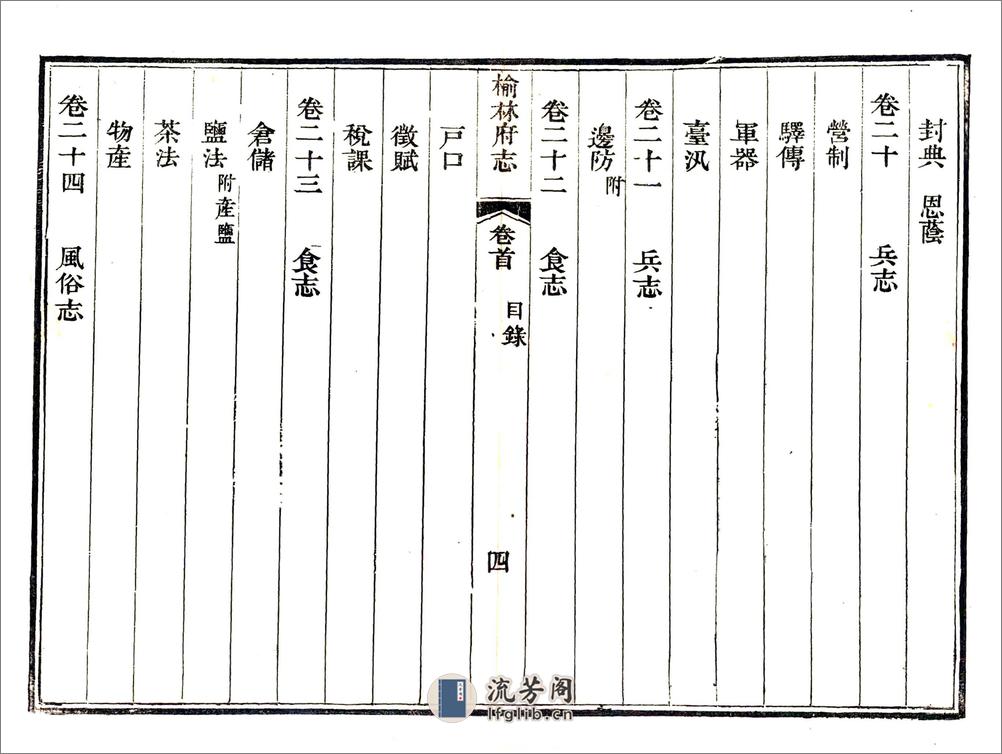 封典 恩蔭
卷二十 兵志
營制
驛傳
軍器
臺汛
卷二十一 兵志
邊防附
卷二十二 食志
榆林府志 卷首 目錄 四
戸口
徵賦
稅課
卷二十三 食志
倉儲
鹽法附產鹽
茶法
物產
卷二十四 風俗志
流芳阁
lfglib.cn